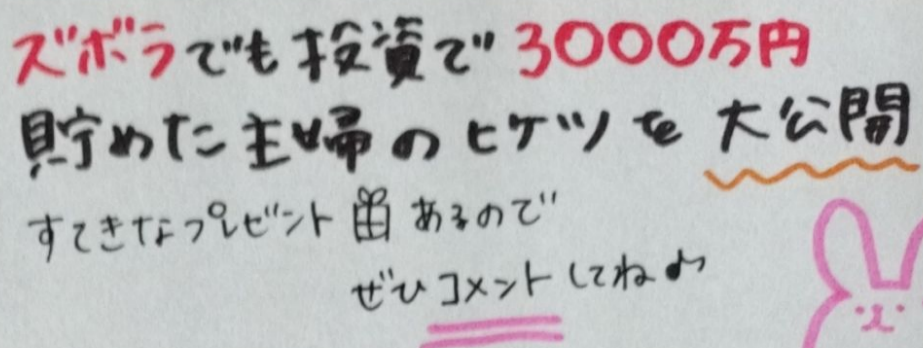 ズボラでも投資で3000万円
貯めた主婦のヒケツを大公開
すてきなプレゼントあるので
ぜひコメントしてね♪